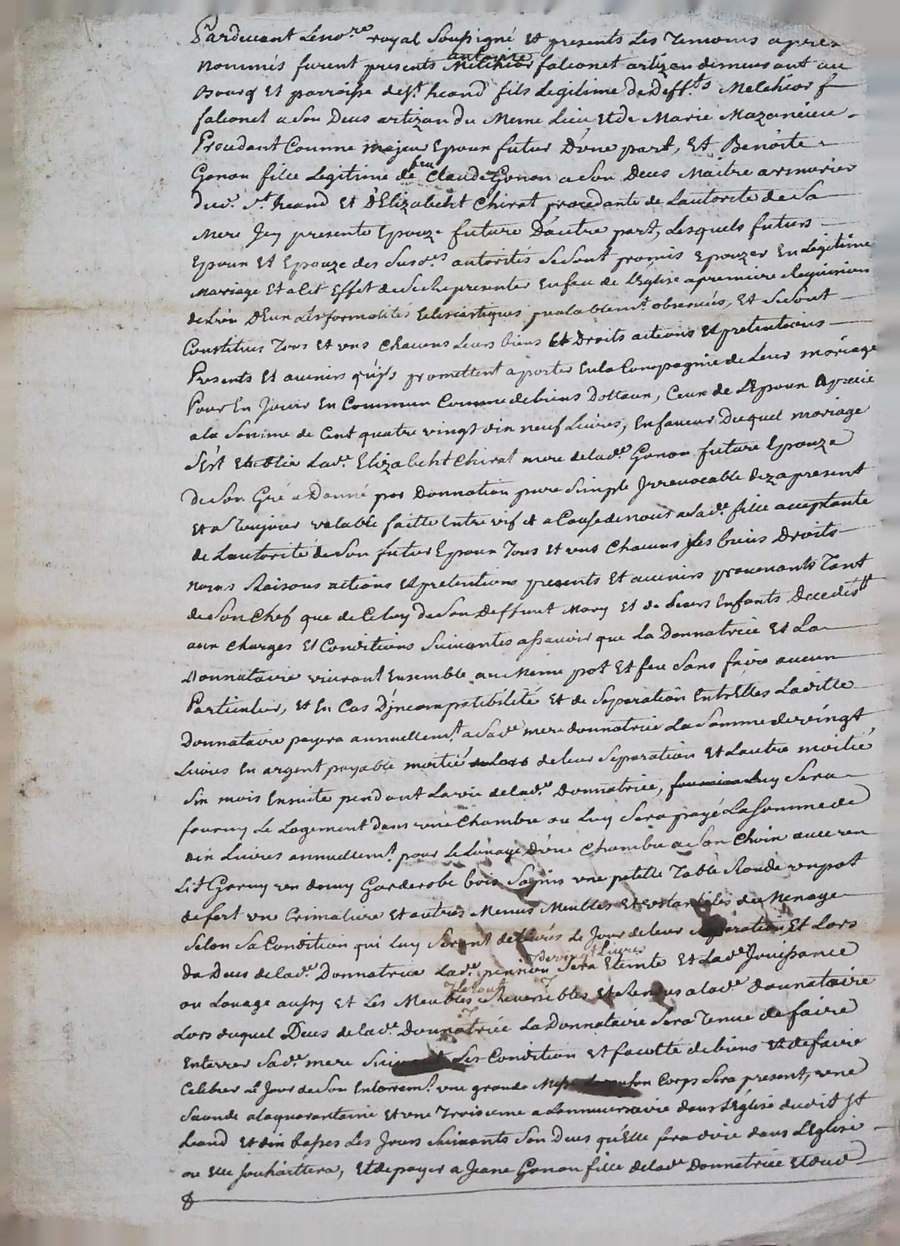 Pardevant Le no.re royal soussigné Et presents Les Temoins apres
nommés furent presents antoine falconet artizan demeurant au
Bourg Et parroisse de St. heand fils Legitime de deff.ts Melchior f
falconet a son Deces artizan du Meme Lieu Et de Marie Mazancieu
Procedant Comme majeur Epoux futur D'une part, Et Benoite
Gonon fille Legitime de feu Claude Gonon a Son Deces Maitre armurier
dud. St heand Et d'Elizabeht Chirat procedante de Lautorité de Sa
Mere Jcy presente Epouze future D'autre part, Lesquels futurs
Epoux Et Epouze des Susd.es autorités Se Sont promis Epouzer En Legitime
Mariage Et a Cet Effet de Se presenter En face de L'Eglise a premiere Requisition
de L'un D'Eux Les formalités Eclesiastiques prealablem.t observées, Et Se Sont
Constitués Tous Et uns Chacuns Leurs biens Et Droits actions Et pretentions
Presents Et avenirs qu'ils promettent aporter En la Compagnie de Leur mariage
Pour En Jouir En Commun Comme de biens Dottaux, Ceux de L'Epoux
a la Somme de Cent quatre vingt dix neuf Livres, En faveur Duquel mariage
S'est Etablie Lad.e Elizabeht Chirat mere de lad.e Gonon future Epouze
de Son Gré a Donné par Donnation pure Simple Jrrevocable deza present
Et a Toujour valable faitte Entre vif Et a Cause de nous a lad.e fille acceptante
de Lautorité de Son futur Epoux Tous Et uns Chacuns Ses biens Droits
noms Raisons actions Et pretentions presents Et avenirs provenants Tant
de Son Chef que de Celuy de Son Deffunt Mary Et de Leurs Enfants Decedés
aux Charges Et Conditions Suivantes assavoir que La Donnatrice Et La
Donnataire vivront Ensemble au Meme pot Et feu Sans faire aucun
Particulier, Et En Cas D'jncompatibilité Et de Separation Entr'Elles Laditte
Donnataire payera annuellem.t a Sad.e mere donnatrice La Somme de vingt
Livres En argent payable moitié de leur Separation Et L'autre moitié
Six mois Ensuite pendant La vie de lad.e Donnatrice, Luy Sera
fourny Le Logement Dans une Chambre ou Luy Sera payé La Somme de
dix Livres annuellem.t pour Le Louage d'une Chambre a Son Choix avec un
Lit Garny un demy Garderobe bois Sapin une petitte Table Ronde un pot
de fert une Crimaliere Et autres Menus Meubles Et ustansiles de Menage
Selon Sa Condition qui Luy Seront delivrés Le Jour de leur Separation Et Lors
du Deces de lad.e Donnatrice Lad.e pension de vingt Livres Sera Eteinte Et Lad.e Jouissance
ou Louage aussy Et Les Meubles Reversibles Et Rendus a lad.e donnataire
Lors duquel Deces de lad.e Donnatrice La Donnataire Sera Tenue de faire
Enterrer Sad.e mere Suivant Ses Condition Et faculté de biens Et de faire
Celebrer Le Jour de Son Enterrem.t une grande Messe Son Corps Sera present, une
Seconde a la quarantaine Et une Troisieme a L'anniversaire dans L'Eglise dudit St
heand Et dix basses Les Jours Suivants Son Deces qu'Elle fera dire dans L'Eglise
ou Elle Souhaittera, Et de payer a Jeane Gonon fille de lad.e donnatrice Et dud